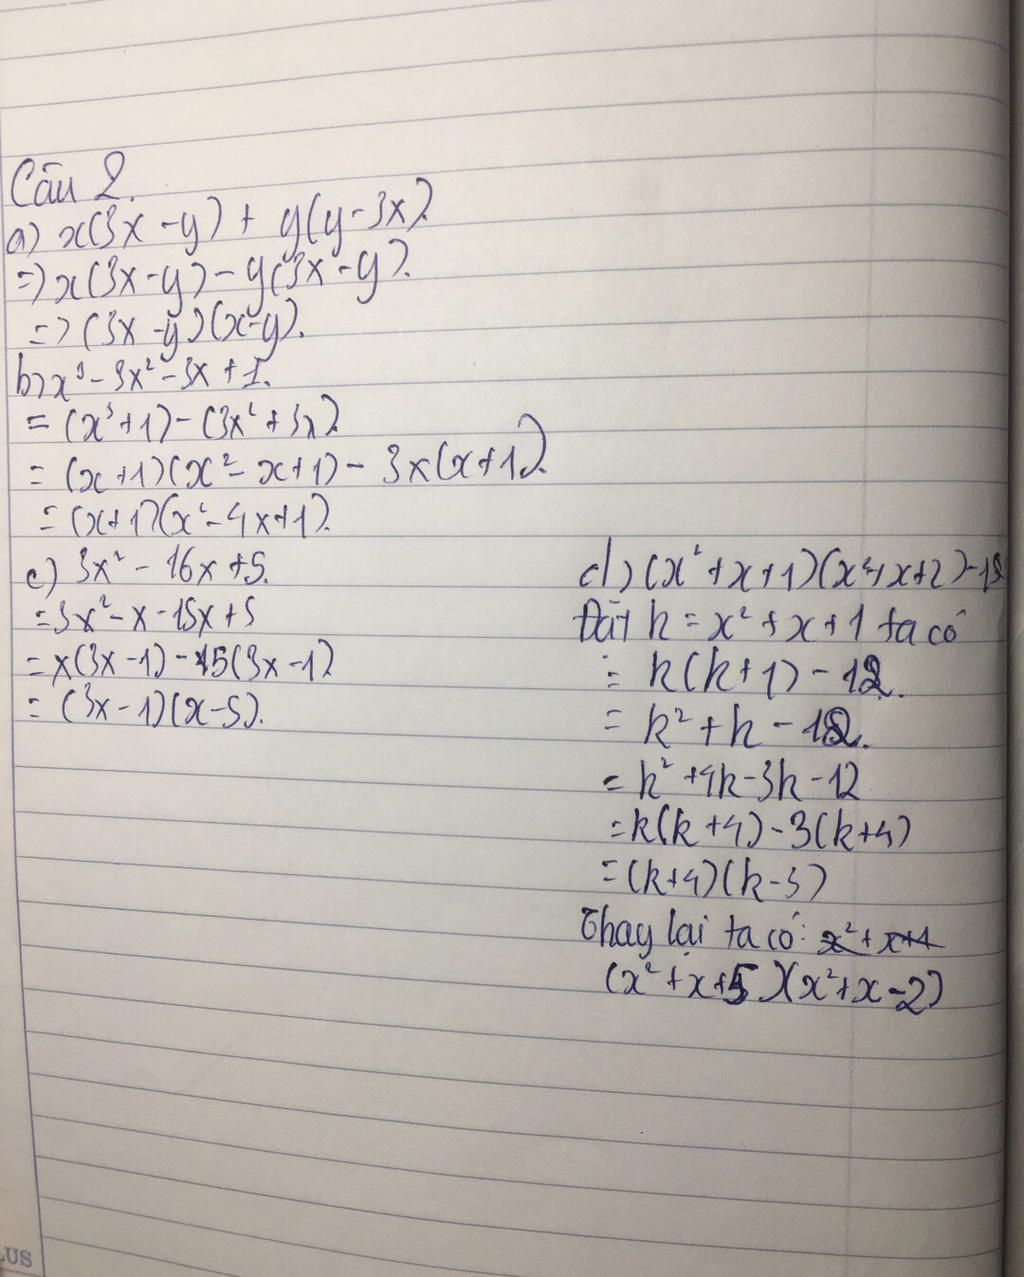 Câu 2.
a) x(3x - y) + y(y - 3x).
=> x(3x - y) - y(3x - y).
=> (3x - y)(x - y).
b) x³ - 3x² - 3x + 1.
= (x³ + 1) - (3x² + 3x)
= (x + 1)(x² - x + 1) - 3x(x + 1).
= (x + 1)(x² - 4x + 1).
c) 3x² - 16x + 5.
= 3x² - x - 15x + 5
= x(3x - 1) - 5(3x - 1)
= (3x - 1)(x - 5).
d) (x² + x + 1)(x² + x + 2) - 12
Đặt k = x² + x + 1 ta có
= k(k + 1) - 12.
= k² + k - 12.
= k² + 4k - 3k - 12
= k(k + 4) - 3(k + 4)
= (k + 4)(k - 3)
Thay lại ta có: x² + x + 1
(x² + x + 5)(x² + x - 2)
LUS